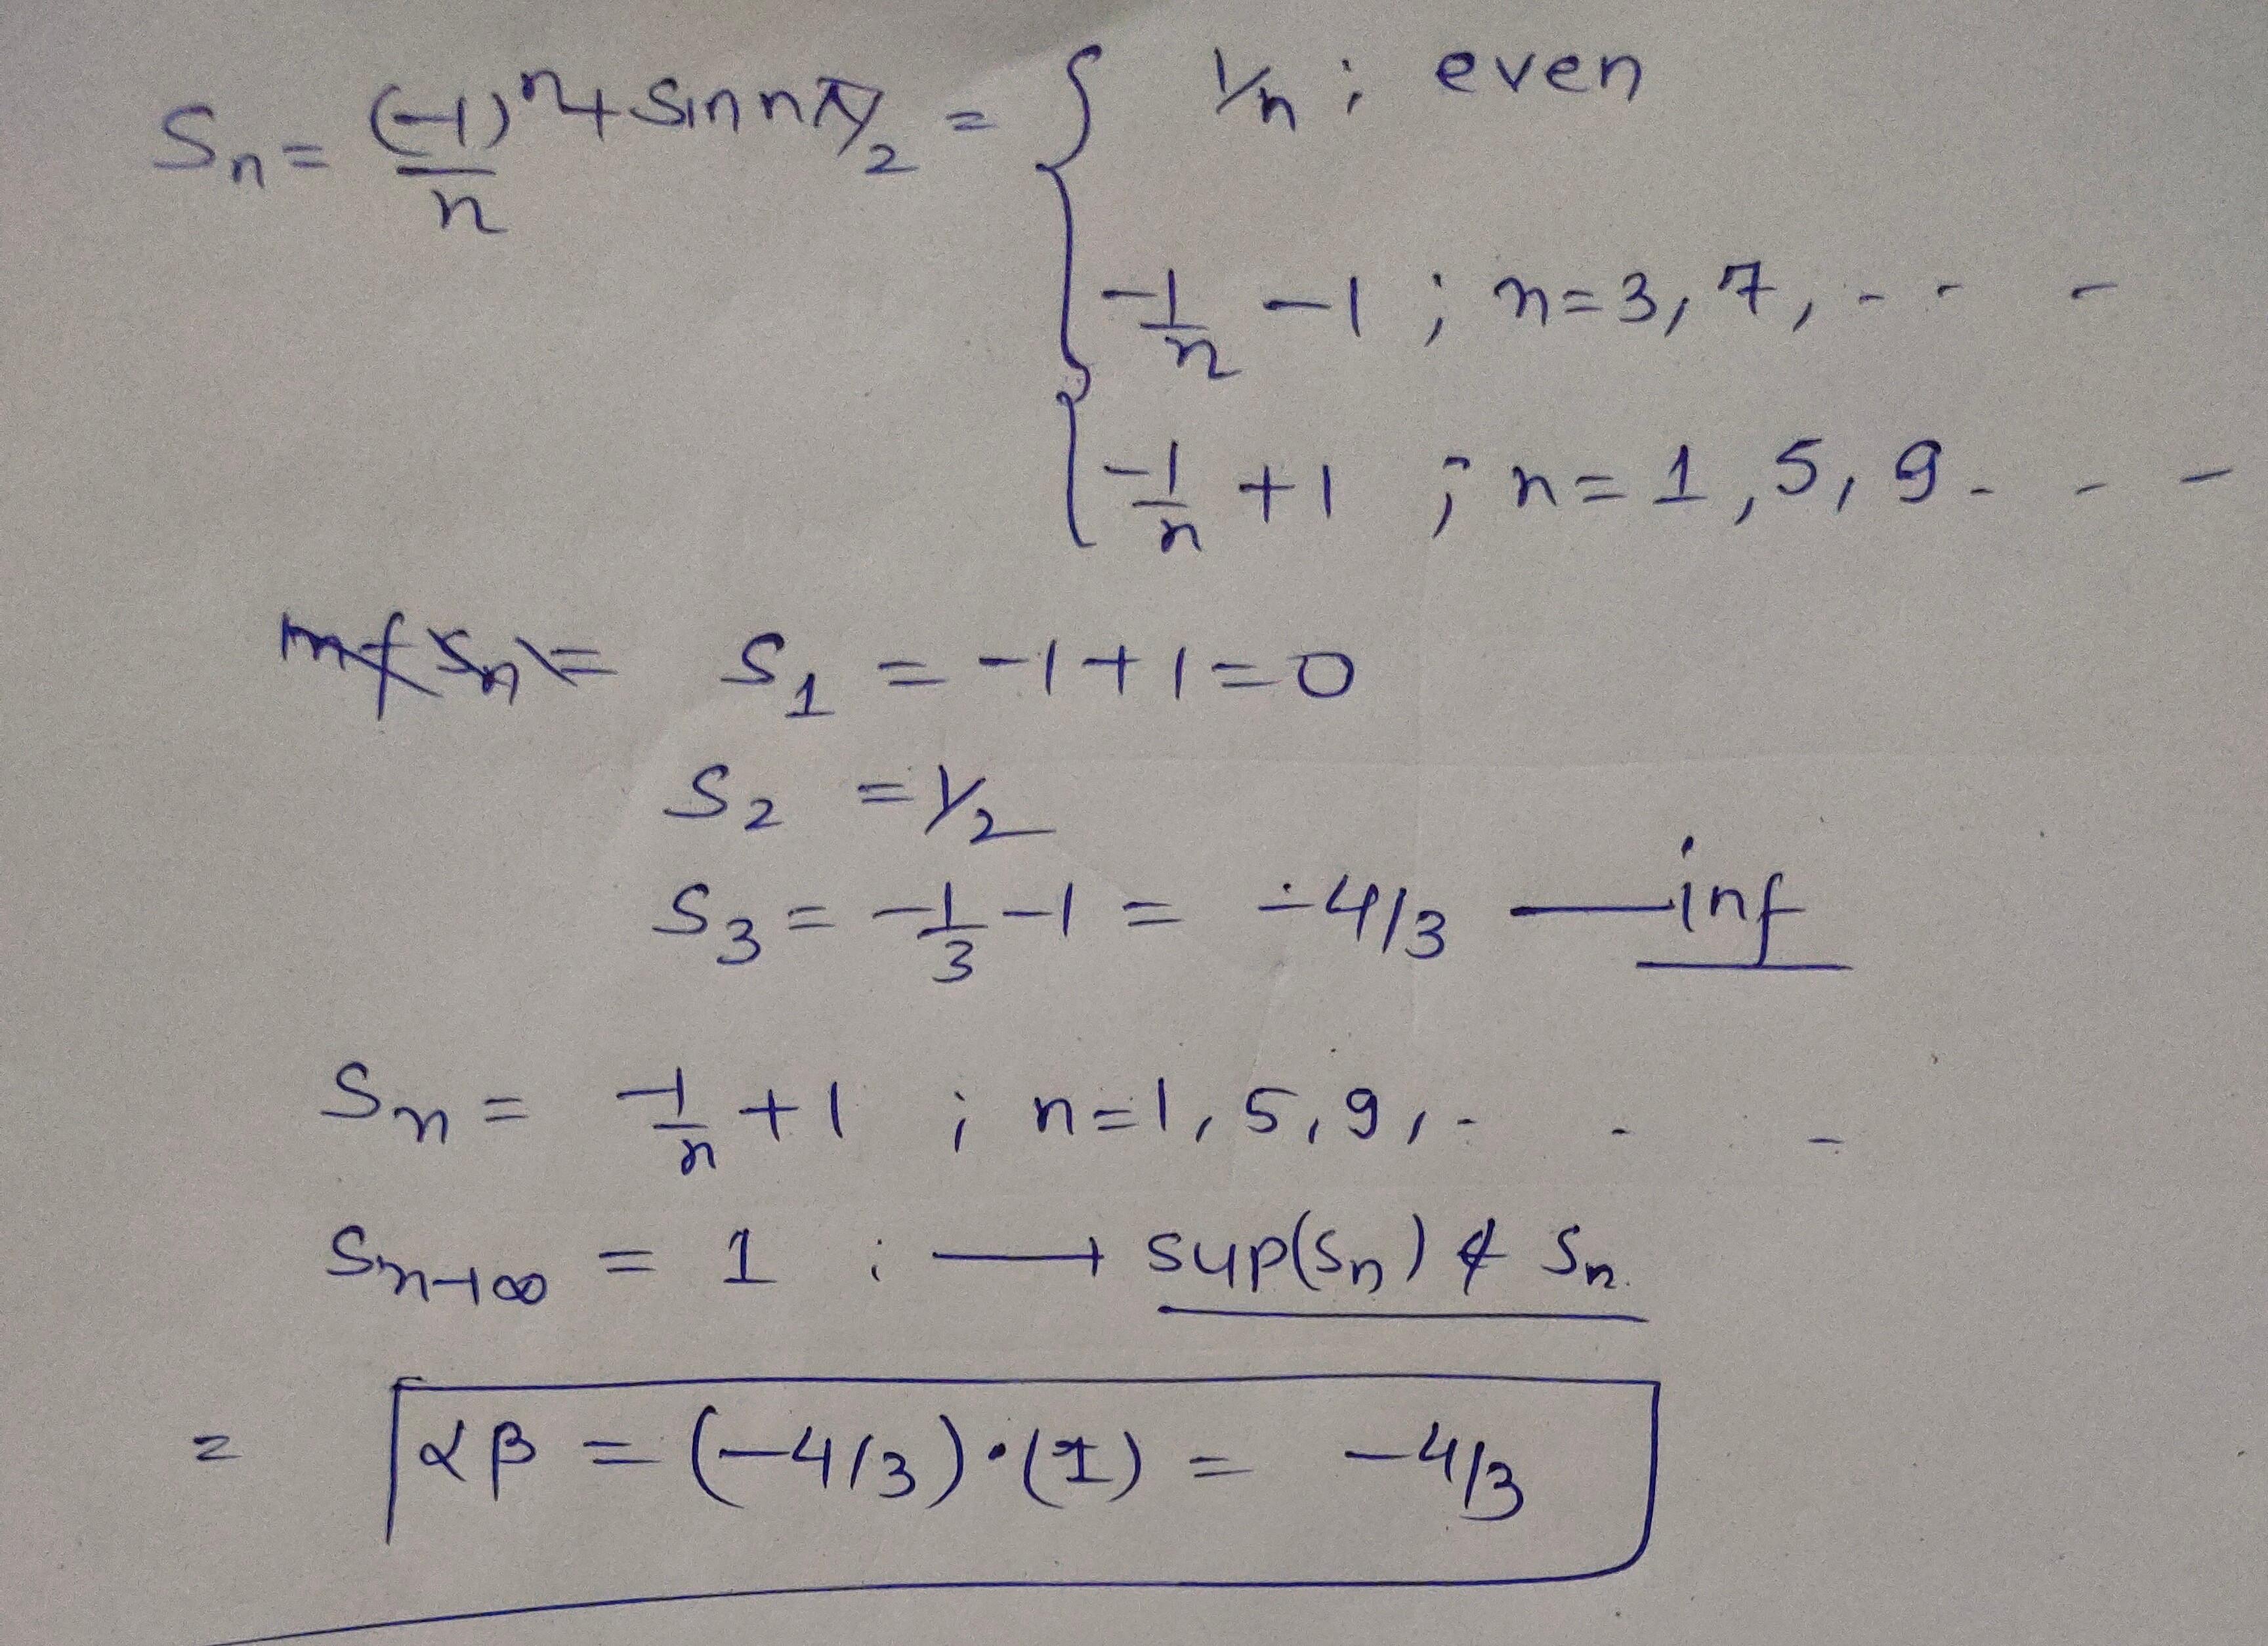 Sn = (-1)^n/n + sin nπ/2 = { 1/n ; even
-1/n -1 ; n=3, 7, - - -
-1/n +1 ; n= 1, 5, 9 - - -
inf Sn = S1 = -1+1=0
S2 = 1/2
S3 = -1/3 -1 = -4/3 — inf
Sn = -1/n +1 ; n=1, 5, 9, - - -
Sn→∞ = 1 : → sup(Sn) ∉ Sn.
= αβ = (-4/3)·(1) = -4/3